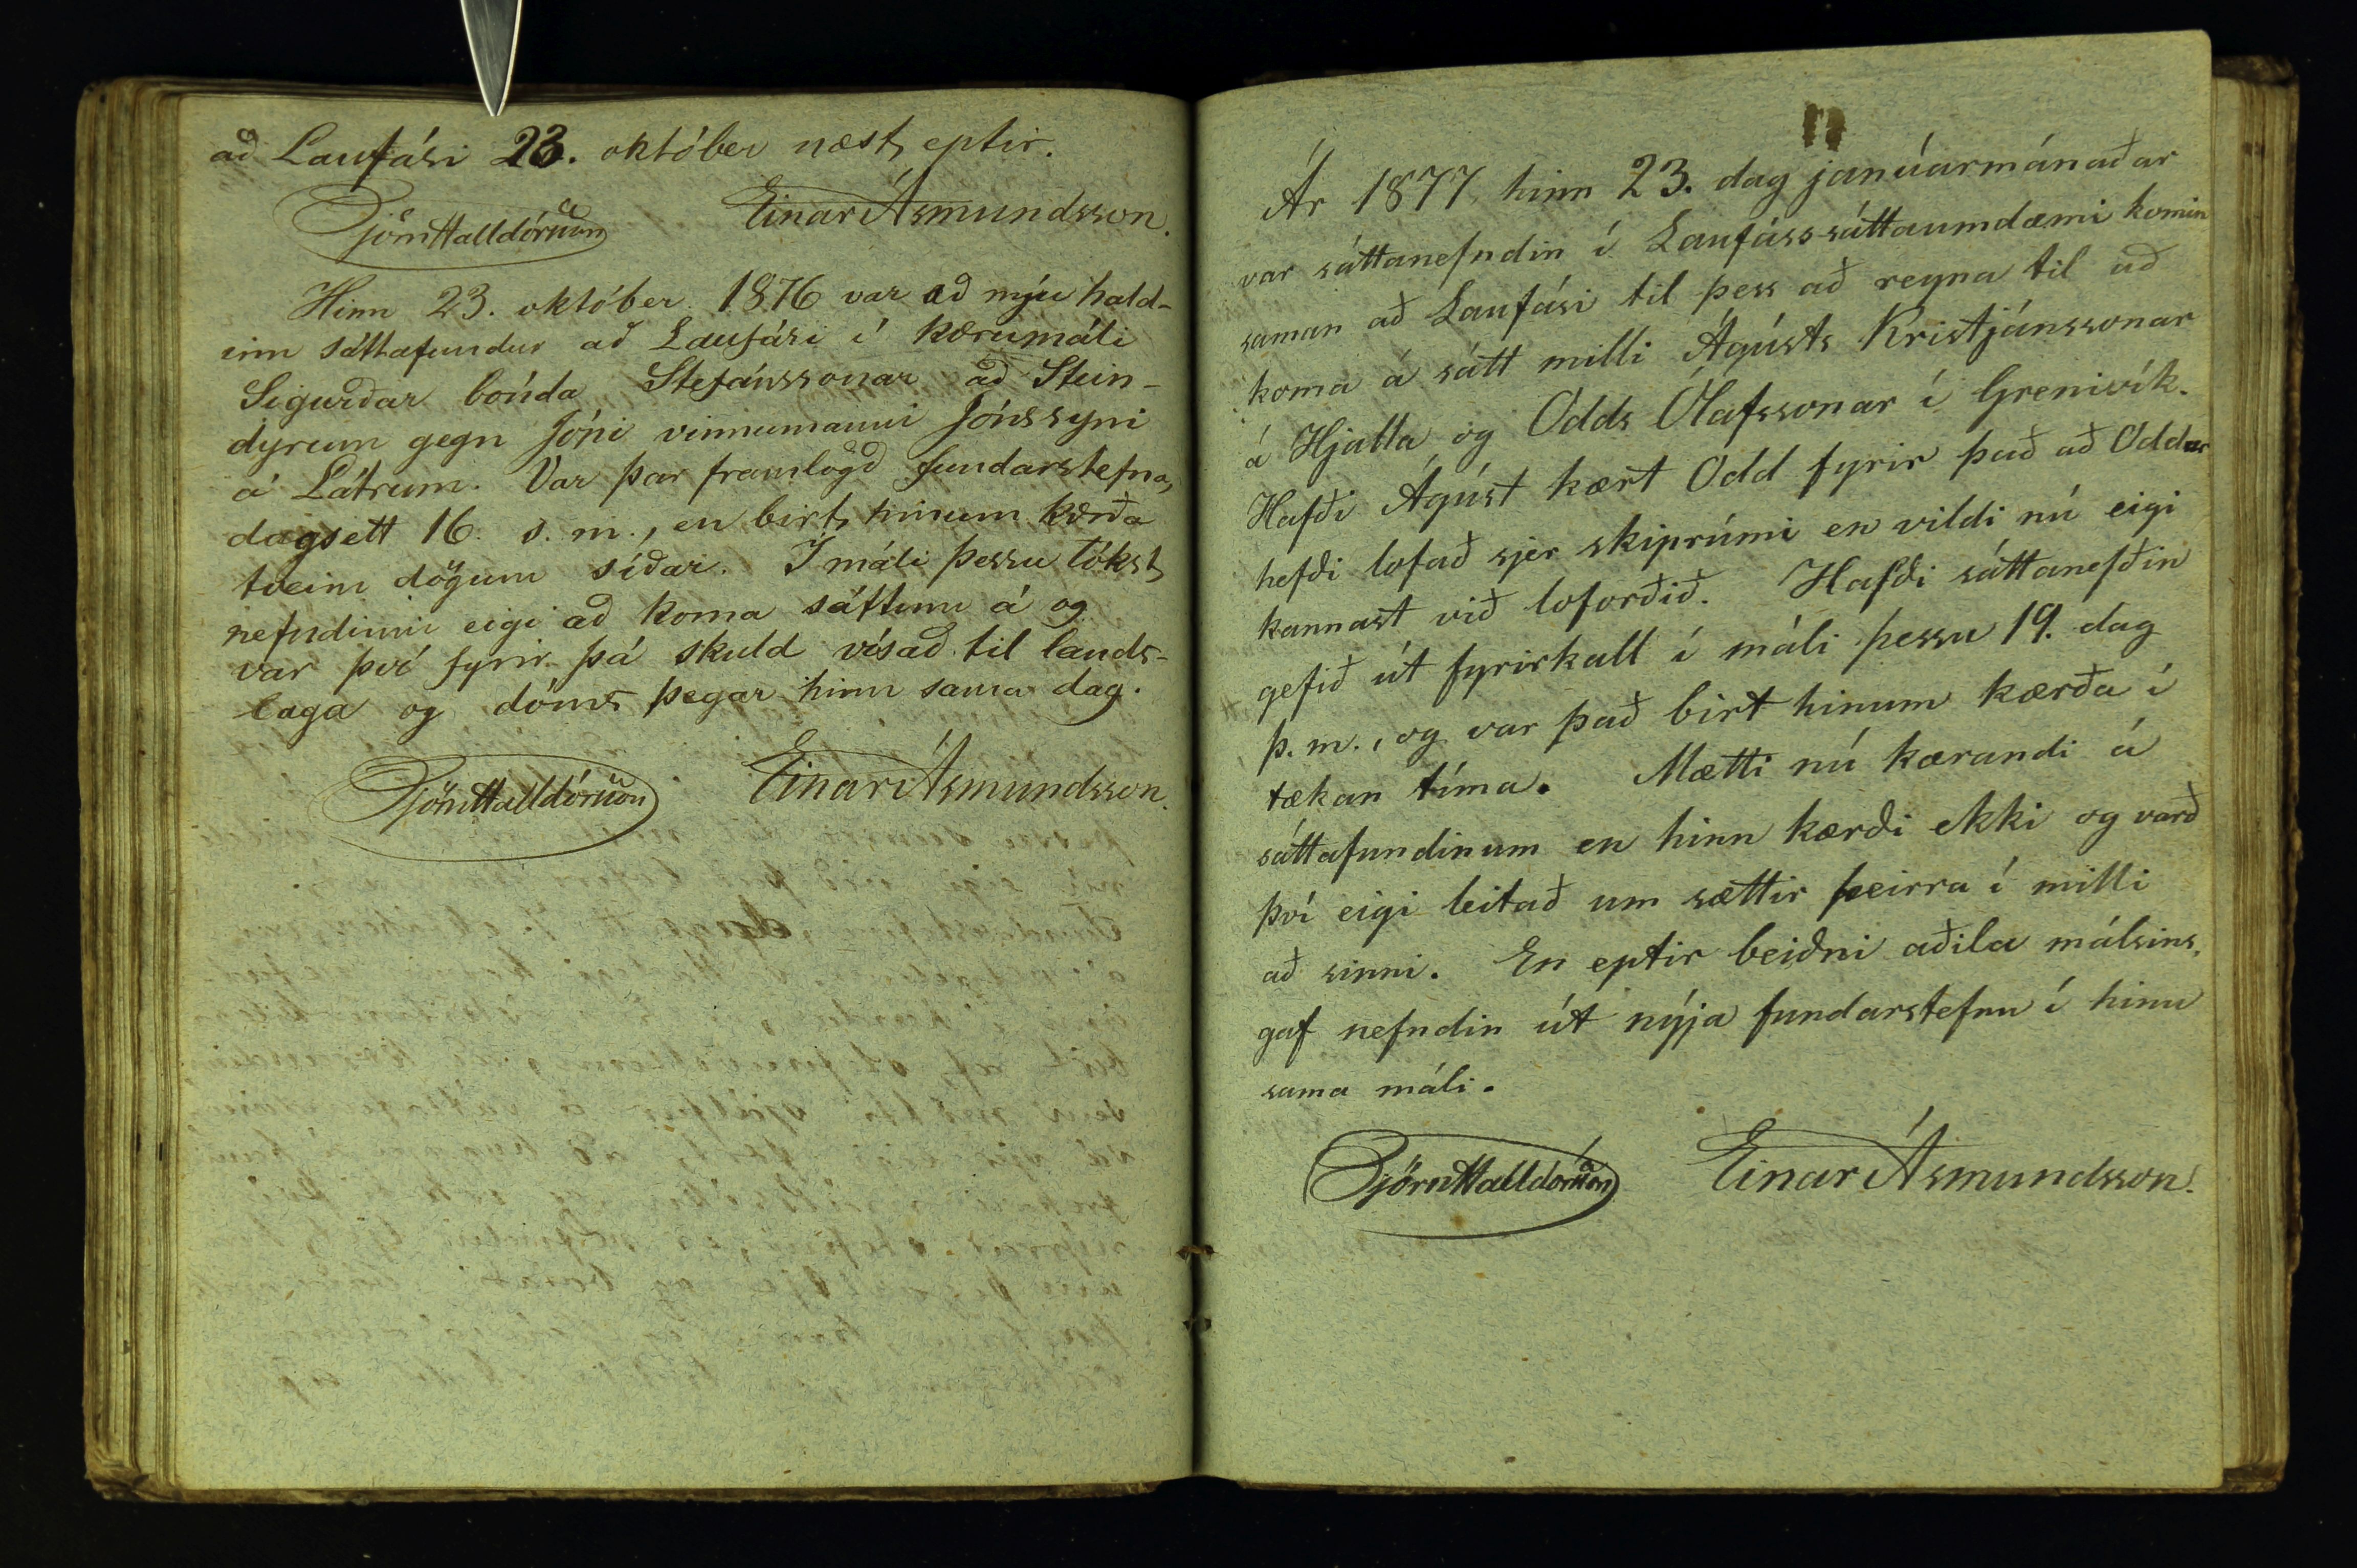 að Laufási 23. október næst eptir.
Björn Halldórsson Einar Ásmundsson.
Hinn 23. október 1876 var að nýju hald-
inn sáttafundur að Laufási í kærumáli
Sigurðar bónda Stefánssonar að Stein-
dyrum gegn Jóni vinnumanni Jónssyni
á Látrum. Var þar framlögð fundarstefna,
dagsett 16. s. m., en birt hinum kærða
tveim dögum síðar. Í máli þessu tókst
nefndinni eigi að koma sáttum á og
var því fyrir þá skuld vísað til lands-
laga og dóms þegar hinn sama dag.
Björn Halldórsson Einar Ásmundsson.
Ár 1877 hinn 23. dag janúarmánaðar
var sáttanefndin í Laufáss-sáttaumdæmi komin
saman að Laufási til þess að reyna til að
koma á sátt milli Ágústs Kristjánssonar
á Hjalla og Odds Ólafssonar í Grenivík.
Hafði Ágúst kært Odd fyrir það að Oddur
hefði lofað sjer skiprúmi en vildi nú eigi
kannast við loforðið. Hafði sáttanefðin
gefið út fyrirkall í máli þessu 19. dag
þ. m., og var það birt hinum kærða í
tækan tíma. Mætti nú kærandi á
sáttafundinum en hinn kærði ekki og varð
því eigi leitað um sættir þeirra í milli
að sinni. En eptir beiðni aðila málsins
gaf nefndin út nýja fundarstefnu í hinu
sama máli.
Björn Halldórsson Einar Ásmundsson.